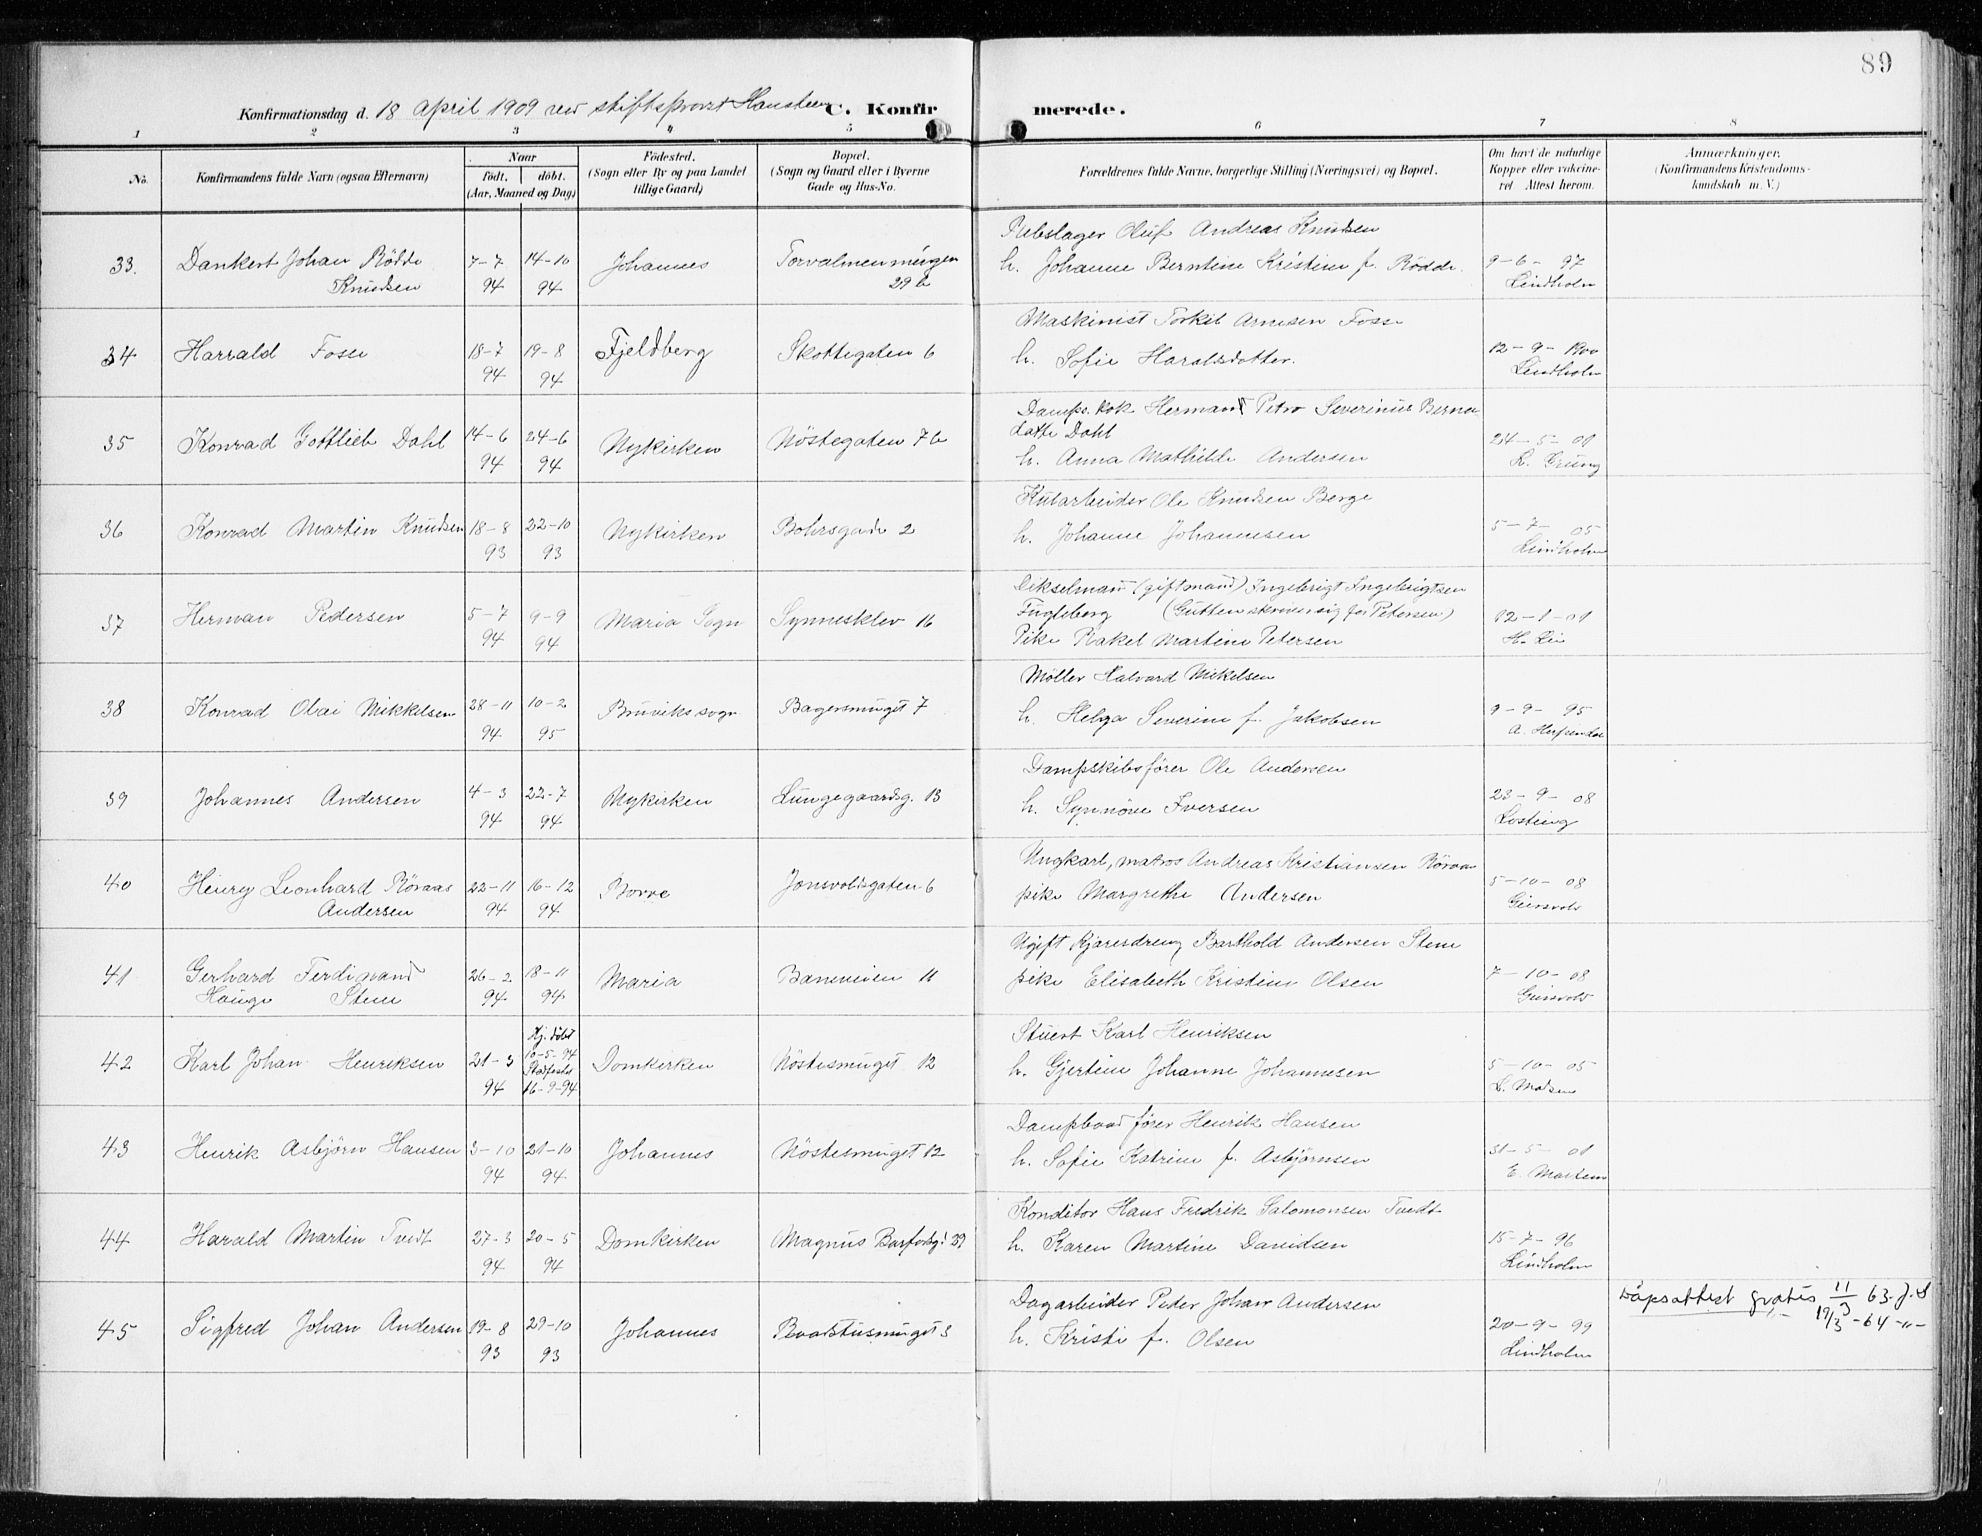 89
Konfirmationsdag d. 18 april 1909 ved stiftsprovst Hansteen C. Konfirmerede.
1 2 3 4 5 6 7 8
No. Konfirmandens fulde Navn (ogsaa Efternavn) Naar født. døbt. (Aar, Maaned og Dag) Fødested. (Sogn eller By og paa Landet tillige Gaard) Bopæl. (Sogn og Gaard eller i Byerne Gade og Hus-No. Forældrenes fulde Navne, borgerlige Stilling (Næringsvei) og Bopæl. Om havt de naturlige Kopper eller vakcineret Attest herom. Anmærkninger. (Konfirmandens Kristendomskundskab m. V.)
Rebslager Oluf Andreas Knudsen
33. Dankert Johan Rödde 7-7 14-10 Johannes Torvalmenningen h. Johanne Berntine Kristine f. Rödde. 9-6-97
Knudsen 94 94 29 b Lindholm
Maskinist Torkil Arnesen Fosse
34 Harrald Fosse 18-7 19-8 Fjeldberg Skottegaten 6 h. Sofie Haraldsdotter. 12-9-1900
94 94 Lindholm
Damps. kok Herman Petro Severinus Berna
datte Dahl
35 Konrad Gottlieb Dahl 14-6 24-6 Nykirken Nöstegaten 76 24-5-01
94 94 h. Anna Mathilde Andersen L. Grung
Kularbeider Ole Knudsen Berge
36 Konrad Martin Knudsen 18-8 22-10 Nykirken Bohrsgade 2 h. Johanne Johannesen 5-7-05
93 93 Lindholm
(giftmand) Ingebrigt Ingebrigtsen
37 Herman Pedersen 5-7 9-9 Maria Sogn Synnesklev 16 Fugleberg (Gutten skriver sig for Petersen) 12-1-01
94 94 Pike Rakel Martine Petersen H. Lie
Möller Halvard Mikelsen
38 Konrad Olai Mikkelsen 28-11 10-2 Bruviks sogn Bagersmuget 7 h. Helga Severine f. Jakobsen 9-9-95
94 95 A.
Dampskibsförer Ole Andersen
39 Johannes Andersen 4-3 22-7 Nykirken Lungegaardsg. 13 h. Synnöve Iversen 23-9-08
94 94 Losting
Ungkarl, matros Andreas Kristiansen Röraas
40 Henry Leonhard Röraas 22-11 16-12 Borre Jonsvoldsgaten 6 pike Margrethe Andersen 5-10-08
Andersen 94 94 Geirsvold
Ugift Barthold Andersen Stene
41 Gerhard Ferdinand 26-2 18-11 Maria Baneveien 11 pike Elisabeth Kristine Olsen 7-10-08
Hauge Stene 94 94 Geirsvold
Hj. döbt Stuert Karl Henriksen
42 Karl Johan Henriksen 21-3 10-5-94 Domkirken Nöstesmuget 12 h. Gjertine Johanne Johannesen 5-10-05
94 Stadfestet 16-9-94 L. Madsen
Dampbaadförer Henrik Hansen
43 Henrik Asbjörn Hansen 3-10 21-10 Johannes Nöstesmuget 12 h. Sofie Katrine f. Asbjörnsen 31-5-01
94 94 E. Martens
Konditor Hans Fredrik Salomonsen Tvedt
44 Harald Martin Tvedt 27-3 20-5 Domkirken Magnus Barfodsg. 29 h. Karen Martine Davidsen 15-7-96
94 94 Lindholm
Dagarbeider Peder Johan Andersen Dåpsattest gratis 11/3 63. J.S
45 Sigfred Johan Andersen 19-8 29-10 Johannes h. Kristi f. Olsen 20-9-99 -"- 19/3 -64 -"-
93 93 Lindholm